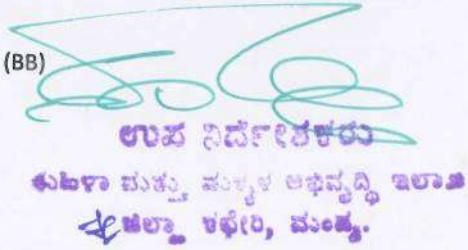 (BB)
ಉಪ ನಿರ್ದೇಶಕರು
ಮಹಿಳಾ ಮತ್ತು ಮಕ್ಕಳ ಅಭಿವೃದ್ಧಿ ಇಲಾಖೆ
ಜಿಲ್ಲಾ ಕಛೇರಿ, ಮಂಡ್ಯ.